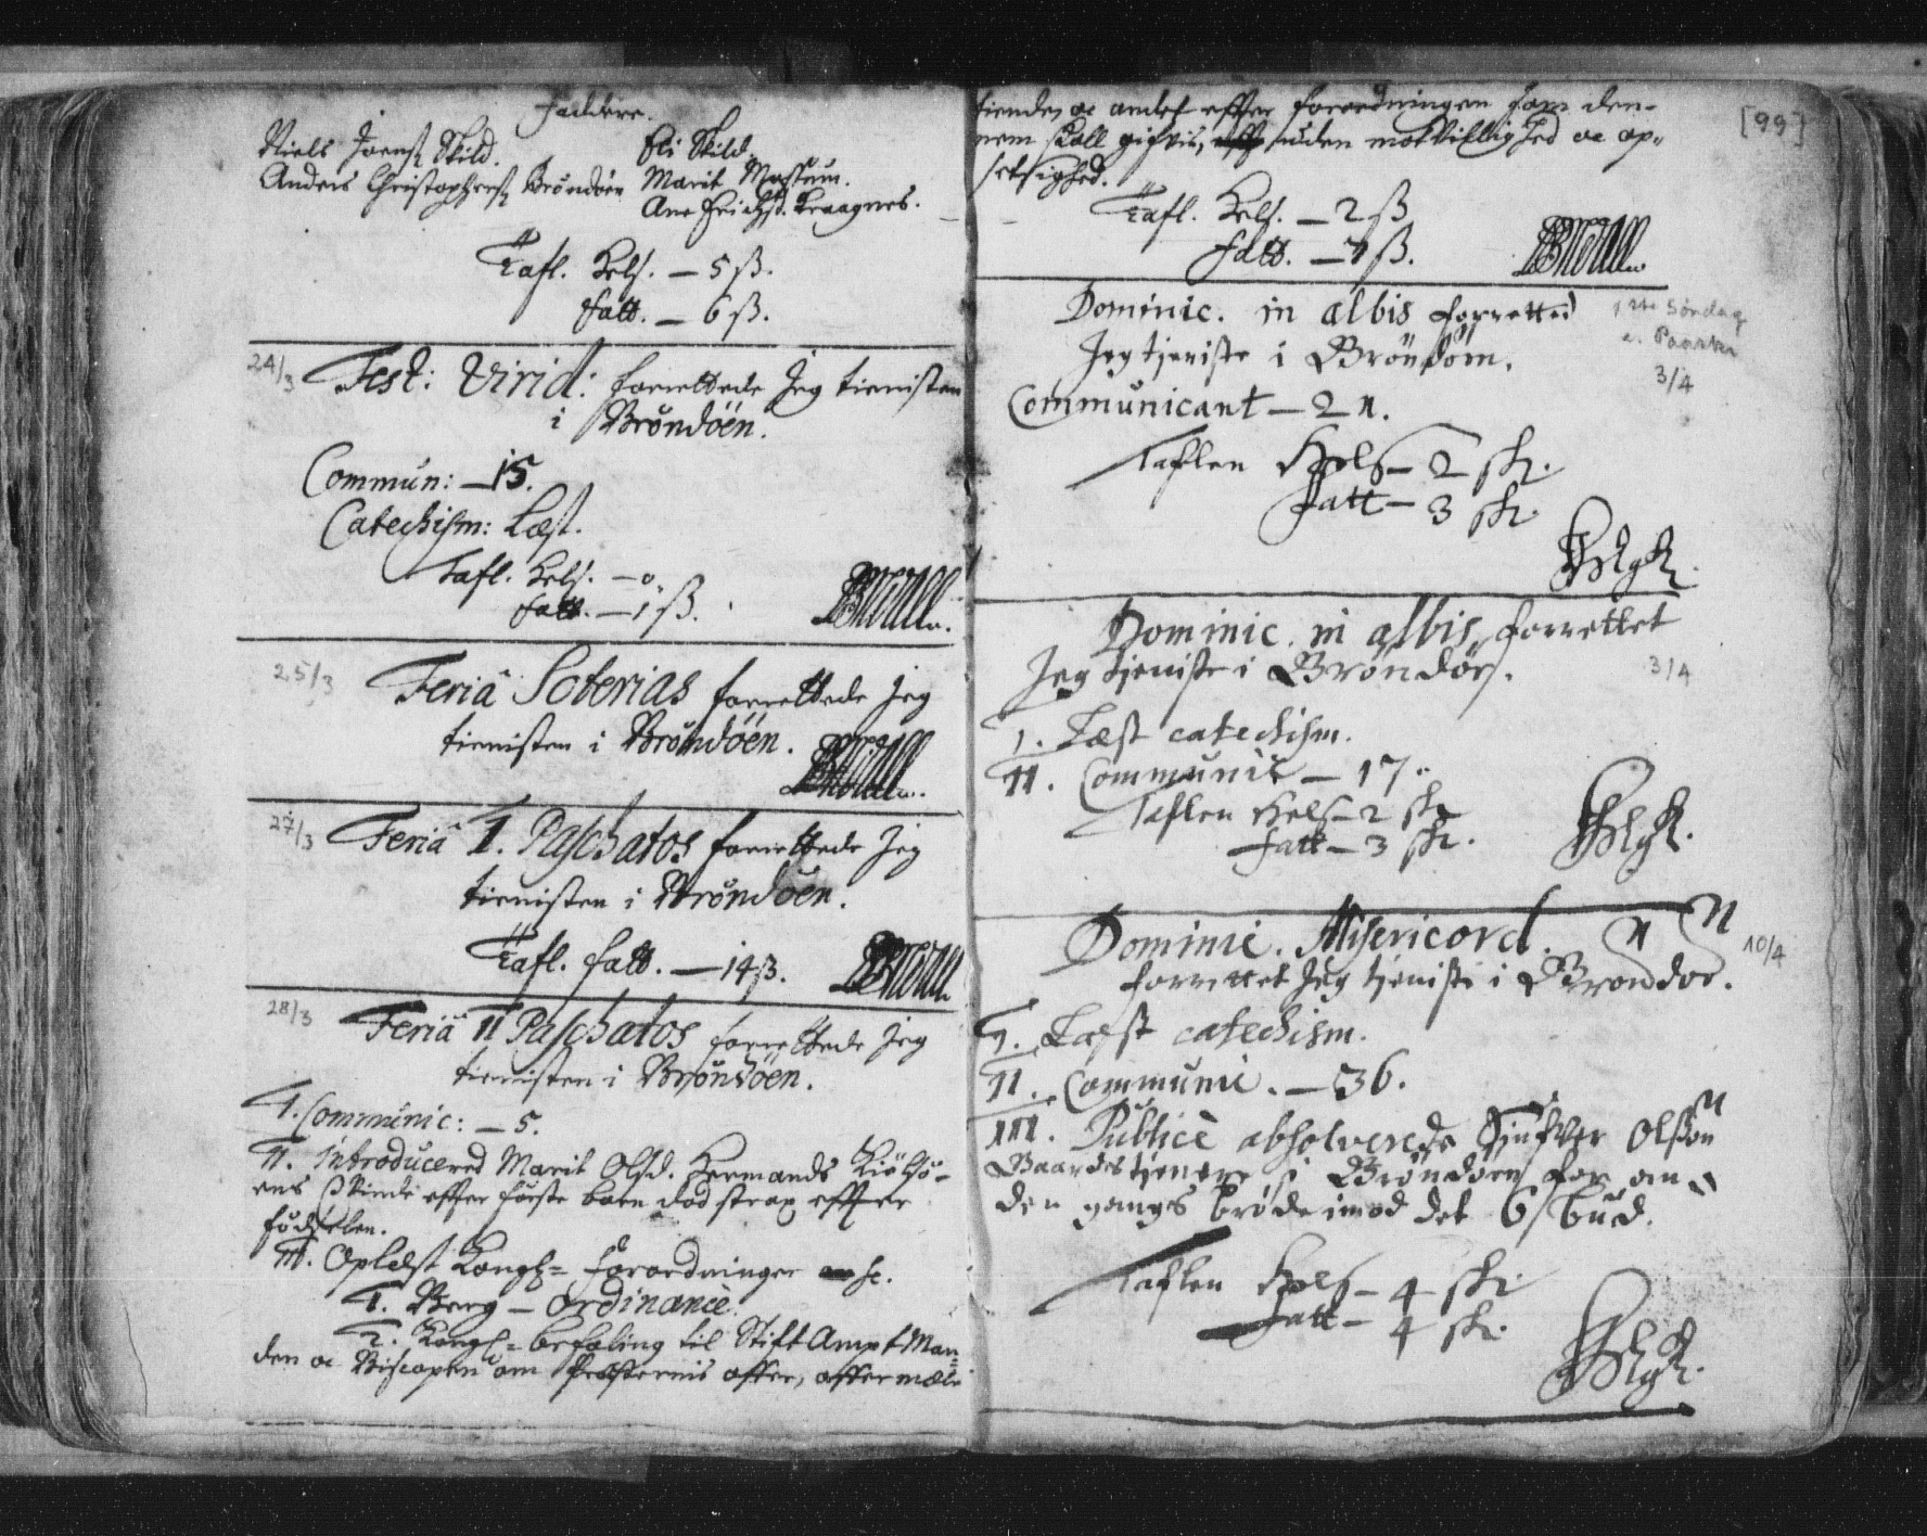 Faddere.
Niels Joens. Skild. Eli Skild.
Anders Christophers. Brøndøen Marit Mossum.
Ane Erichsd. Kraagnes.
Tafl. Hels. – 5 ß.
fatt. – 6 ß.
24/3
Fest: Virid: forrettede Jeg tienisten
i Brøndöen.
Commun: – 15.
Catechism: Læst.
Tafl. Hels. – 0.
fatt. – 1 ß.
25/3
Feriâ Soterias forrettede Jeg
tienisten i Brøndöen.
27/3
Feriâ I. Paschatos forrettede Jeg
tienisten i Brøndöen.
Tafl. fatt. – 14 ß.
28/3
Feriâ II Paschatos forrettede Jeg
tienisten i Brøndöen.
I. Communic: – 5.
II. Introducered Marit Olsd. Hermands
ens qvinde effter første barn död strax effter
födselen.
III. Oplæst Kongl= Forordninger
1. Berg – Ordinance.
2. Kongl= befaling til Stift Ampt Man-
den oc Biscopen om Præsternis offer,
[99]
tiender oc andet effter forordningen som den-
nem skall gifvis, uden motvillighed oc op-
setsighed.
Tafl. Hels. – 2 ß
fatt. – 4 ß.
Dominic. in albis forretted
Jeg tjeniste i Bröndöm.
1ste Søndag
e. Paaske
3/4
Communicant – 21.
Taflen Hels – 2 sk.
Fatt – 3 sk.
Dominic. in albis forrettet
Jeg tjeniste i Bröndöe.
3/4
1. Læst catechism.
II. Communic – 17.
Taflen Hels – 2 sk.
fatt – 3 sk.
Dominic. Misericord.
forrettet Jeg tjeniste i Bröndöe.
10/4
I. Læst catechism.
II. Communic. – 36.
III. Publicè absolverede Olsøn
tjener i Bröndöen for an-
den gangs brøde imod det 6 bud.
Taflen Hels – 4 sk.
Fatt – 4 sk.